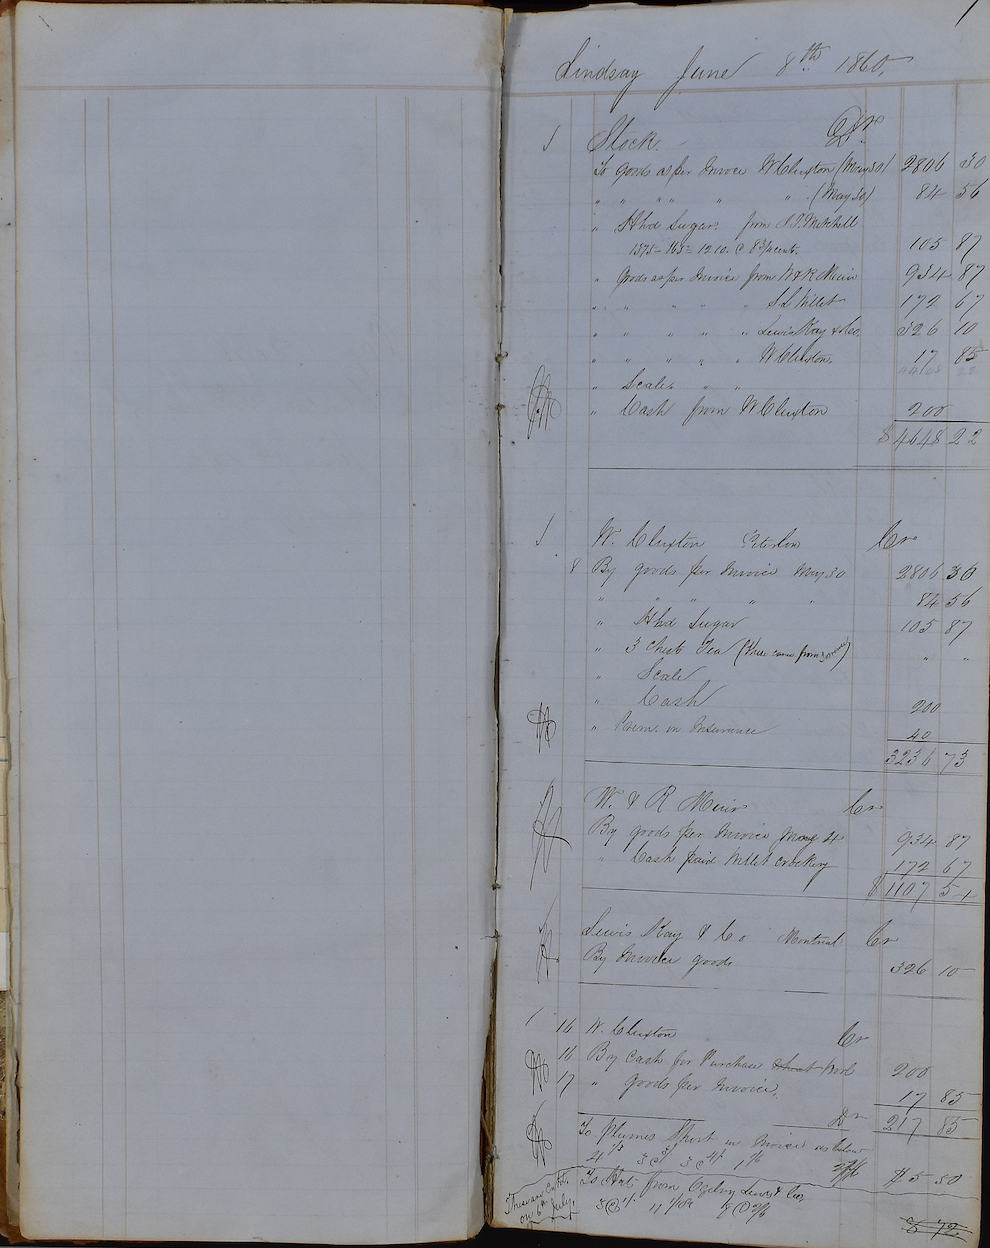 Lindsay June 8th 1860,
1 Stock Dr
To goods as per Invoice W Cluxton (May 30) 2806 30
" " " " " " (May 30) 84 56
" Hhd Sugar from
1375 - 165 = 1210 @ 8 3/4 cents. 105 87
" Goods as per Invoice from W & R Muir 934 87
" " " " " 172 67
" " " " " Lewis Kay & Co, 326 10
" " " " " W Cluxton, 17 85
4448 22
" Scales " "
" Cash from W Cluxton 200
$ 4648 22
1 W. Cluxton Cr
8 By goods per Invoice May 30 2806 30
" " " " " 84 56
" Hhd Sugar 105 87
" 3 Chest Tea " "
" Scale
" Cash 200
" Prem. on Insurance 40
3236 73
W. & R Muir Cr
By goods per Invoice 4 934 87
" Cash paid Millet crockery 172 67
$ 1107 54
Lewis Kay & Co Montreal Cr
By Invoice goods 326 10
1 16 W. Cluxton Cr
16 By Cash for Purchase 200
17 " goods per Invoice, 17 85
Dr 217 85
To Plumes Short in Invoice as below
$5 50
To Hats from Ogilvy Lewis & Co,
on 6th July,
5 72